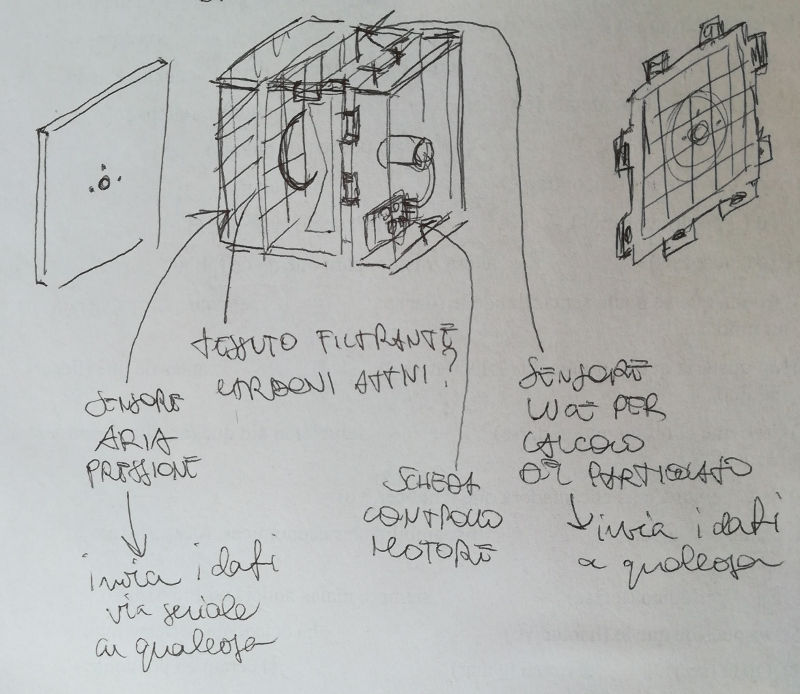 TESSUTO FILTRANTE
CARBONI ATTIVI?
SENSORE
ARIA
PRESSIONE
invia i dati
via seriale
a qualcosa
SCHEDA
CONTROLLO
MOTORE
SENSORE
LUCE PER
CALCOLO
DI PARTICOLATO
invia i dati
a qualcosa